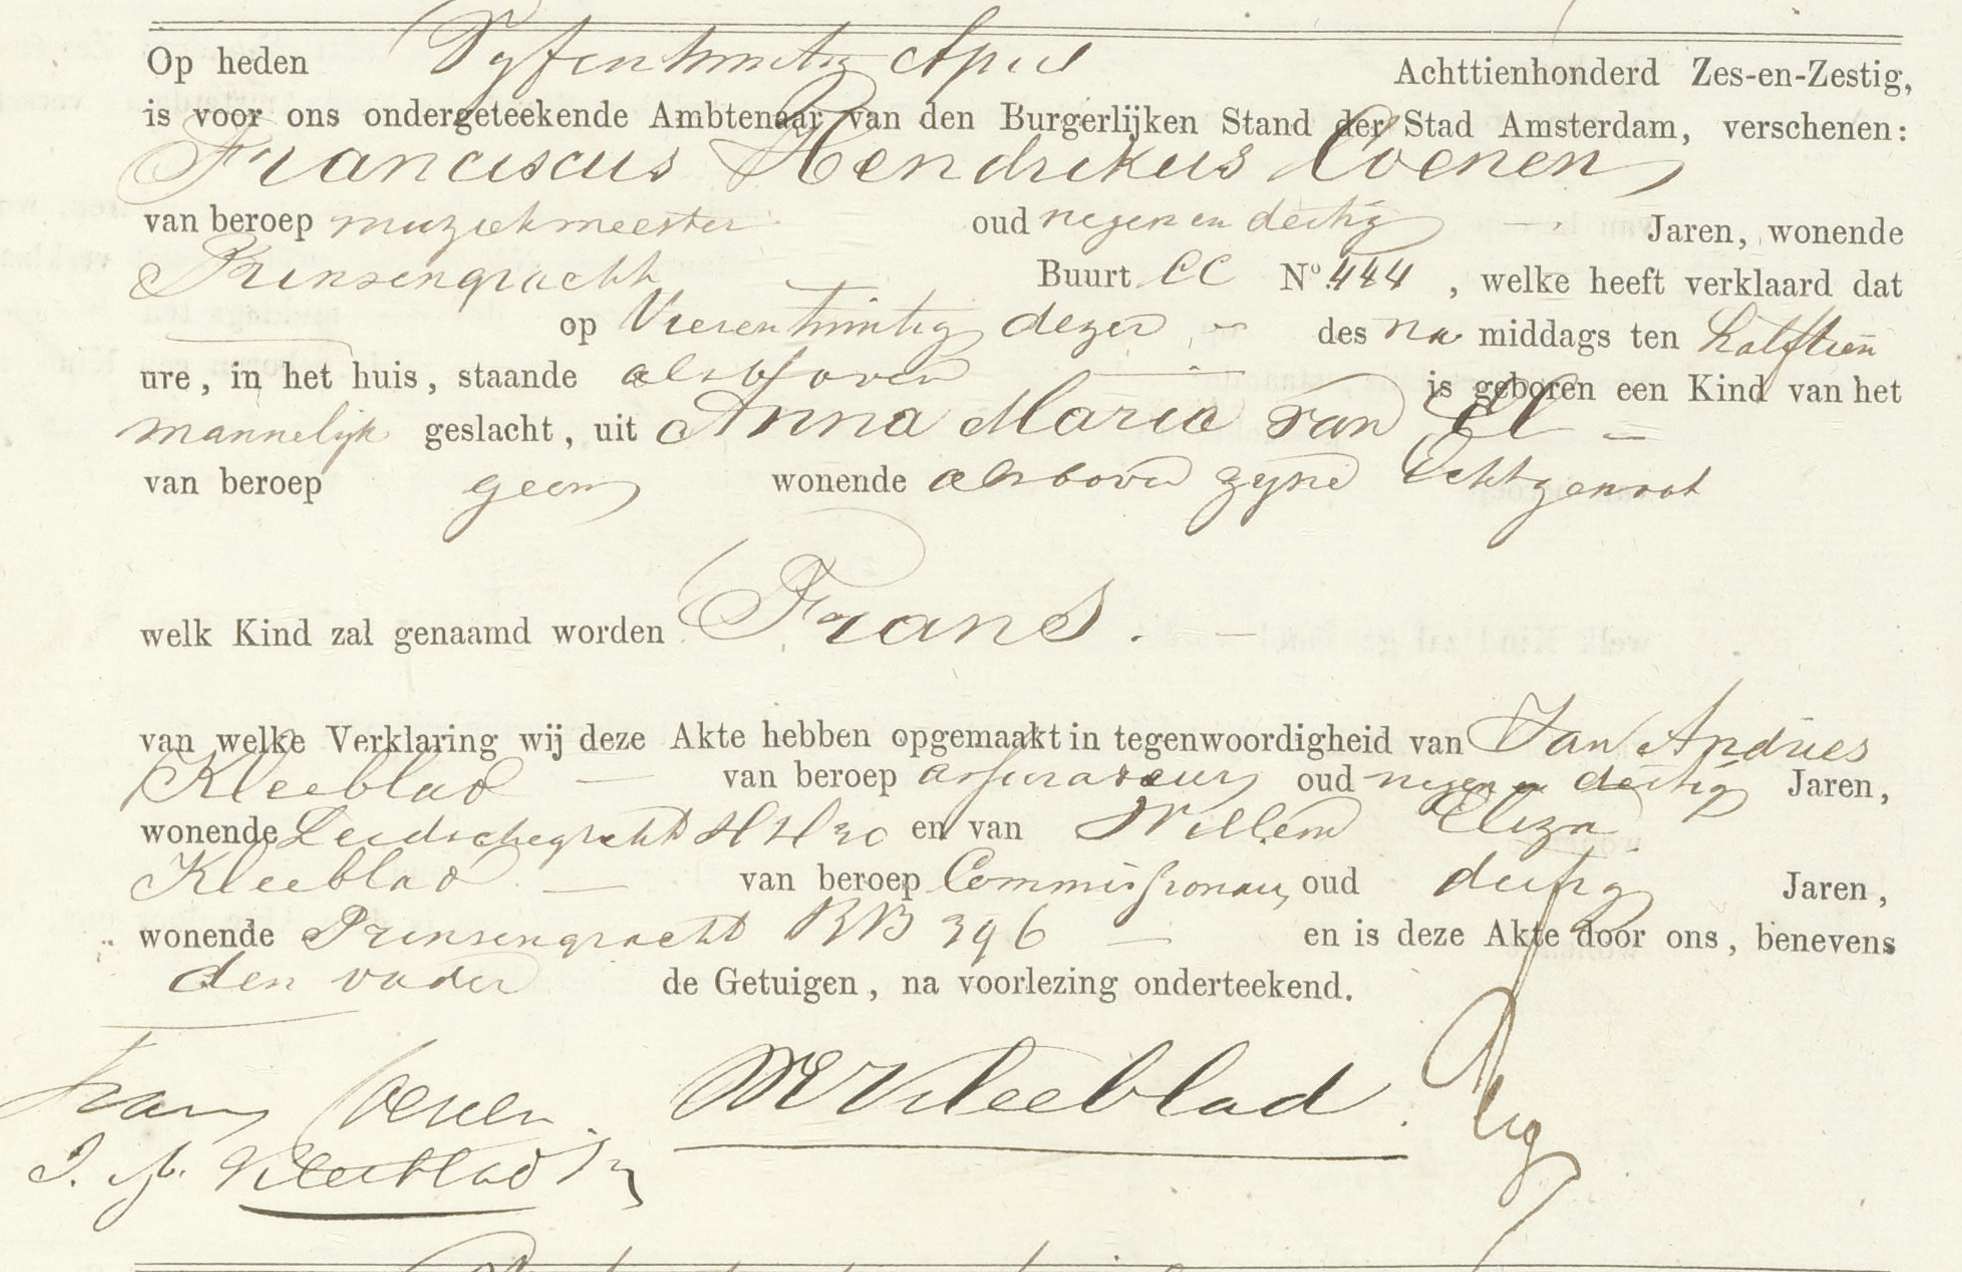 Op heden Vyfentwintig April Achttienhonderd Zes-en-Zestig,
is voor ons ondergeteekende Ambtenaar van den Burgerlijken Stand der Stad Amsterdam, verschenen:
Franciscus Hendrikus Coenen
van beroep muziekmeester oud negen en dertig Jaren, wonende
Prinsengracht Buurt CC No. 444, welke heeft verklaard dat
op Vierentwintig dezer des na middags ten halftien
ure, in het huis, staande alsboven is geboren een Kind van het
mannelijk geslacht, uit Anna Maria van El
van beroep geen wonende alsboven zyne Echtgenoot
welk Kind zal genaamd worden Frans.
van welke Verklaring wij deze Akte hebben opgemaakt in tegenwoordigheid van Jan Andries
Kleeblad van beroep assuradeur oud negen en dertig Jaren,
wonende Leidschegracht HH 30 en van Willem Eliza
Kleeblad van beroep Commissionair, oud dertig Jaren,
wonende Prinsengracht BB 396 en is deze Akte door ons, benevens
den vader de Getuigen, na voorlezing onderteekend.
Frans Coenen. WEKleeblad.
J. A. Kleeblad Jr